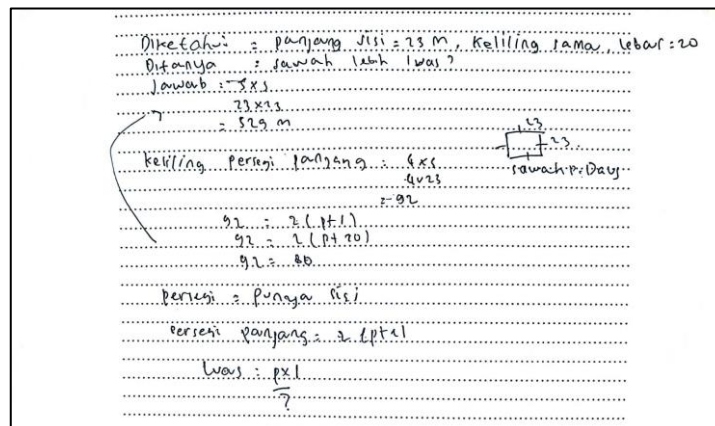 Diketahui : panjang sisi = 23 m, keliling sama, lebar : 20
Ditanya : sawah lebih luas ?
Jawab : s x s
23 x 23
= 529 m
23
23
sawah P. Daus
keliling persegi panjang : 4 x s
4 x 23
= 92
92 : 2 ( p + l )
92 = 2 ( p + 20 )
92 = 80
persegi = punya sisi
persegi panjang = 2 (p + l
luas : p x l
?